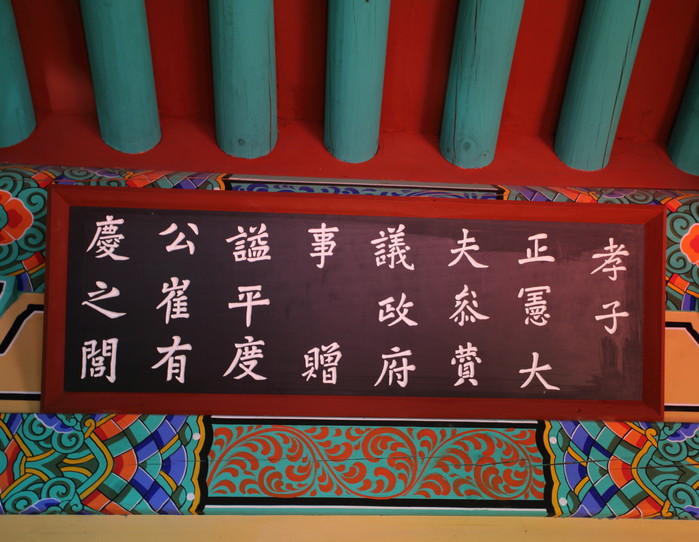 孝子
正憲大
夫叅贊
議政府
事 贈
謚平度
公崔有
慶之閭